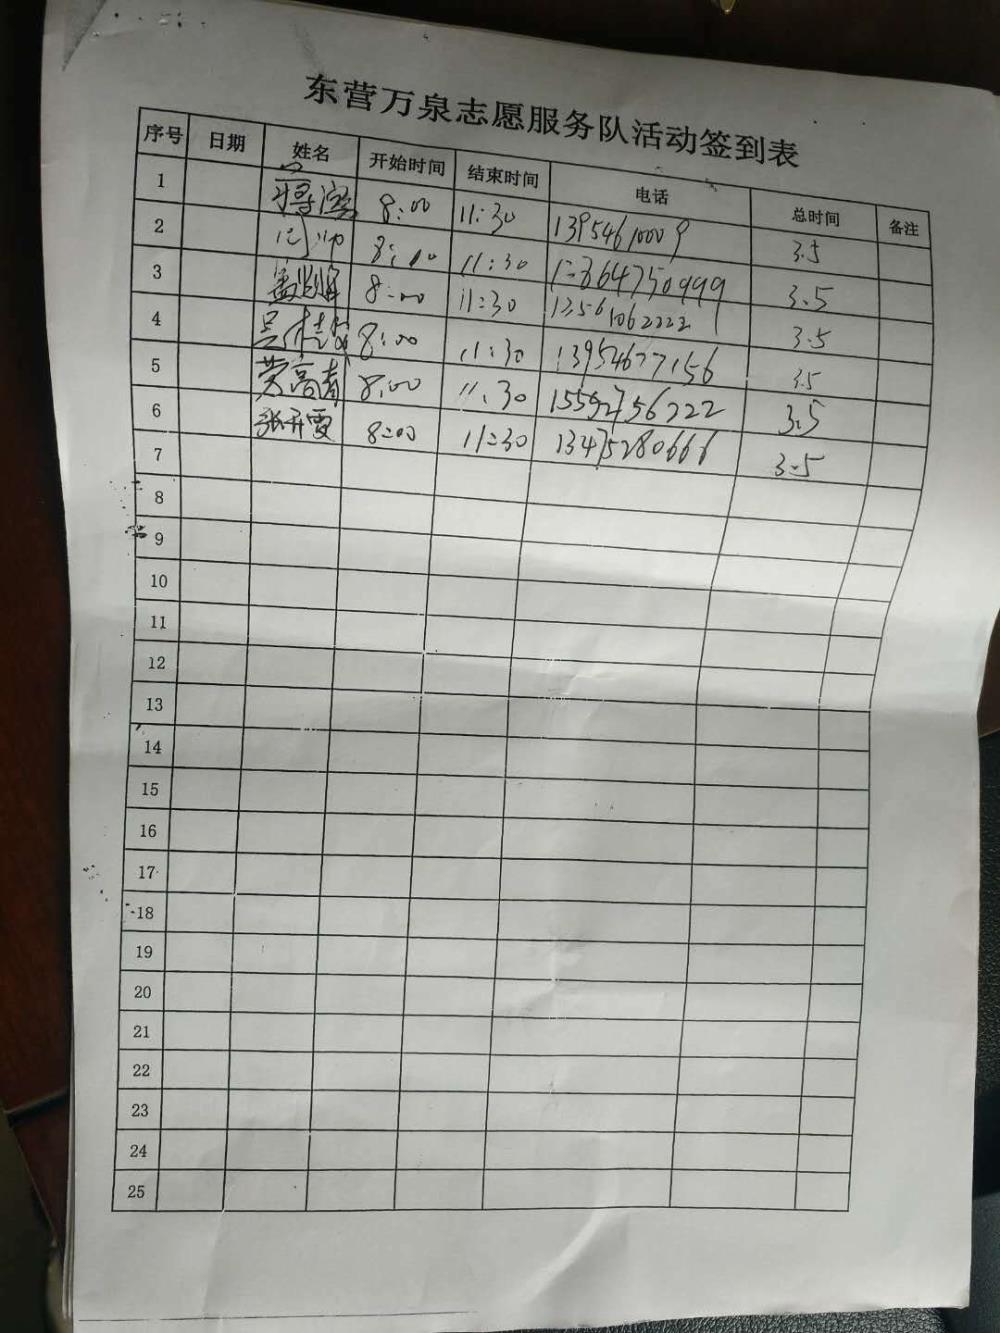 东营万泉志愿服务队活动签到表
序号 日期 姓名 开始时间 结束时间 电话 总时间 备注
1 8:00 11:30 13954610009 3.5
2 8:00 11:30 3.5
3 8:00 11:30 13561062222 3.5
4 8:00 11:30 13954677156 3.5
5 8:00 11:30 3.5
6 张开霞 8:00 11:30 13475280666 3.5
7
8
9
10
11
12
13
14
15
16
17
18
19
20
21
22
23
24
25